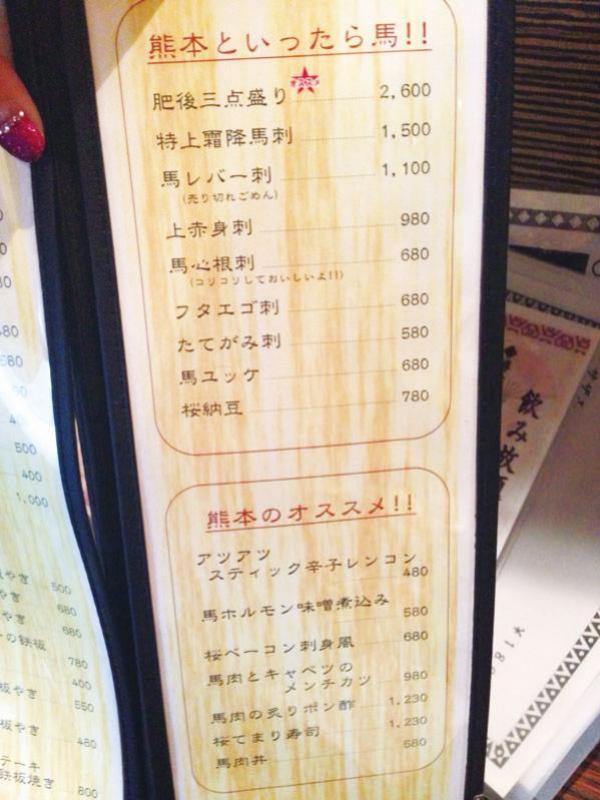 熊本といったら馬!!
肥後三点盛り 2,600
特上霜降馬刺 1,500
馬レバー刺 1,100
(売り切れごめん)
上赤身刺 980
馬心根刺 680
(コリコリしておいしいよ!!)
フタエゴ刺 680
たてがみ刺 580
馬ユッケ 680
桜納豆 780
熊本のオススメ!!
アツアツ
スティック辛子レンコン 480
馬ホルモン味噌煮込み 580
桜ベーコン刺身風 680
馬肉とキャベツの
メンチカツ 980
馬肉の炙りポン酢 1,230
桜てまり寿司 1,230
馬肉丼 680
500
400
1,000
やき 500
やき 680
やき 680
の鉄板
780
400
板やき 550
板やき 480
テーキ
鉄板焼き 800
飲み放題